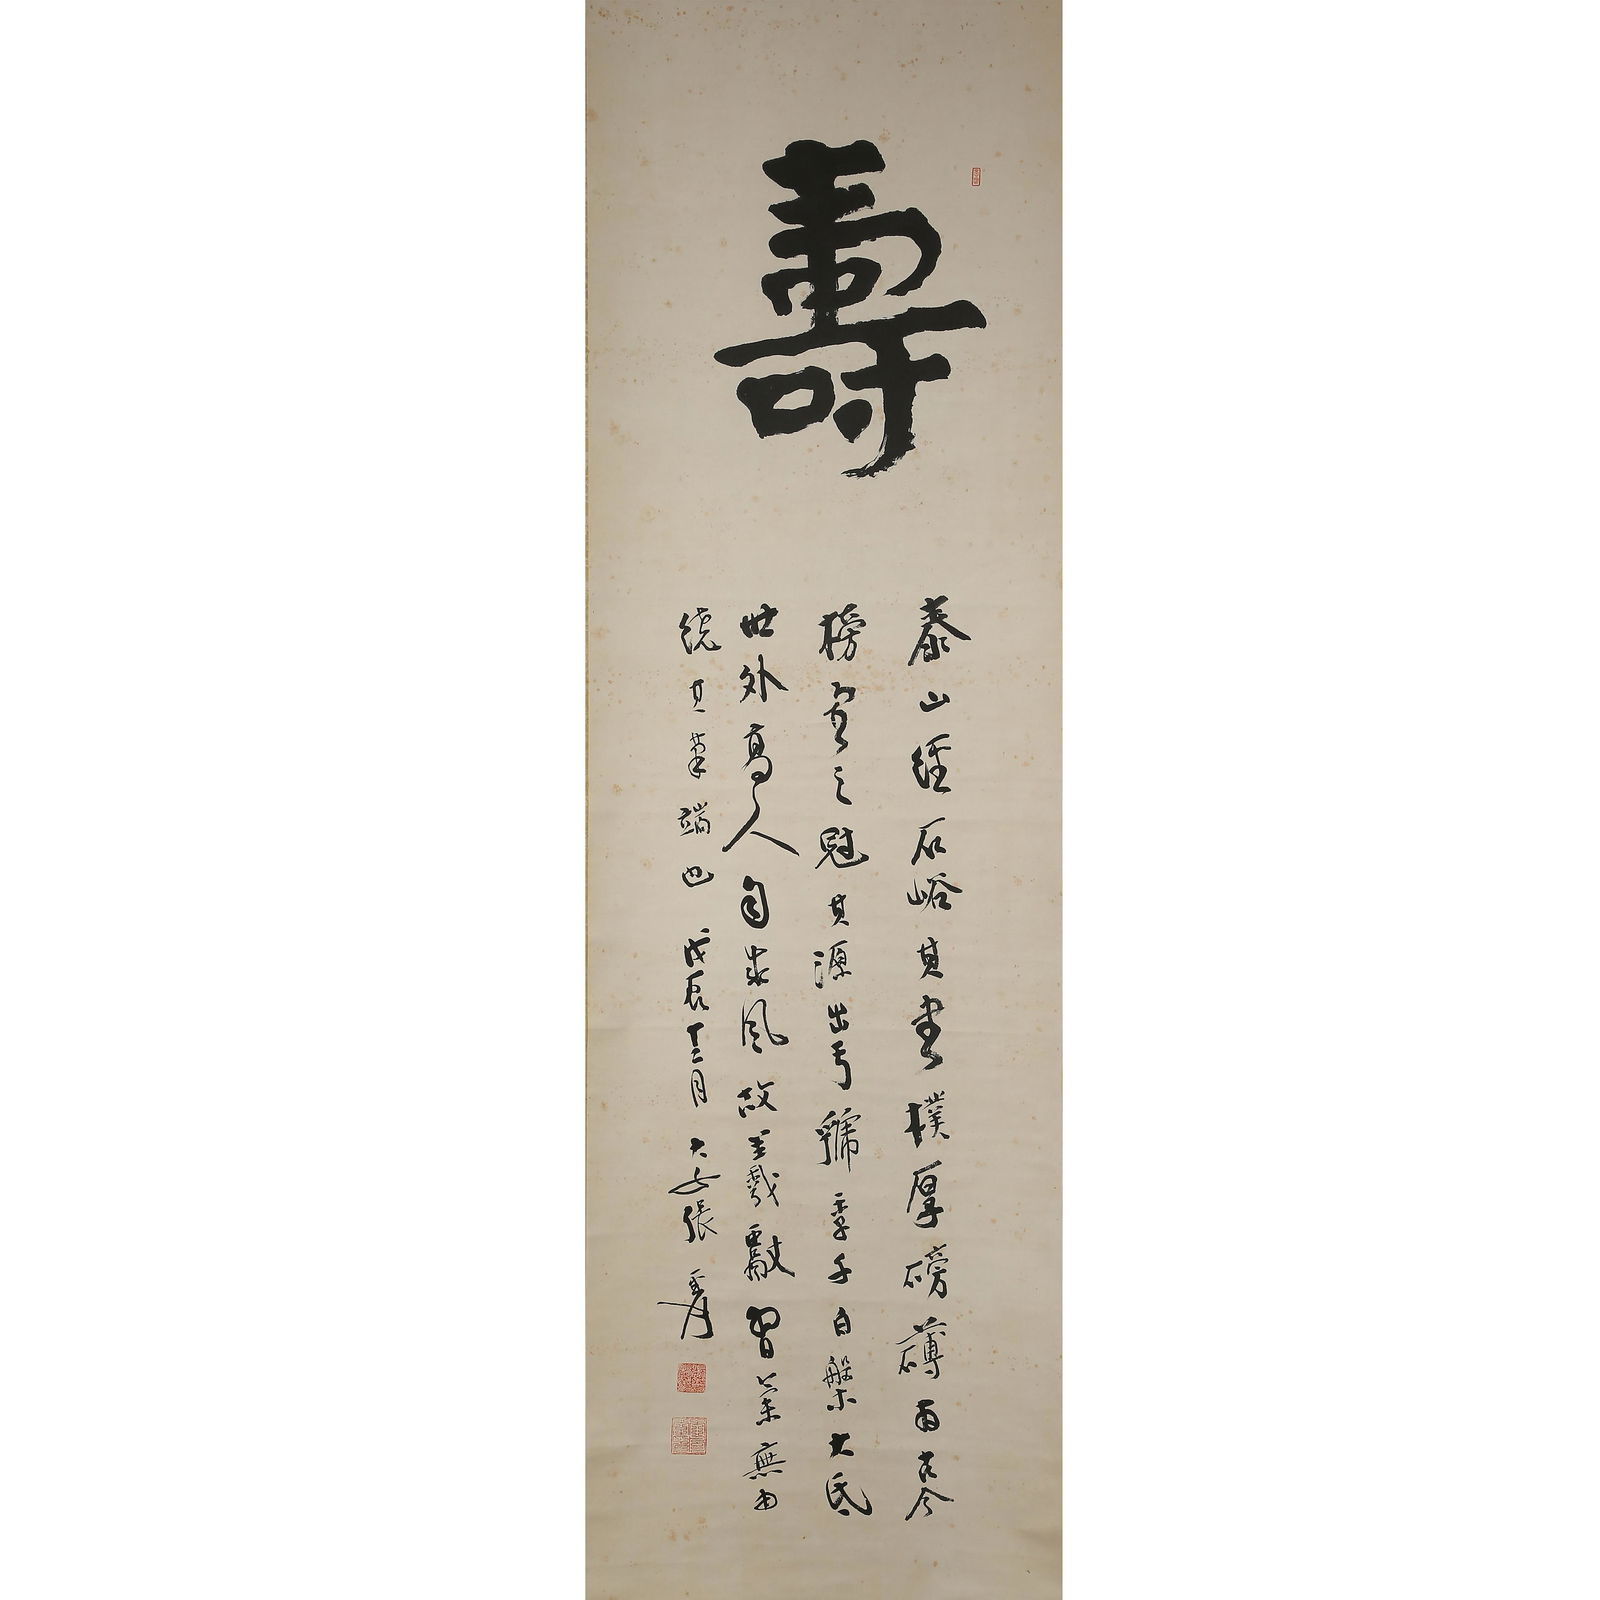 壽
泰山經石峪其書樸厚磅礴爲古今
榜書之冠其源出于虢季子白槃大氐
世外高人自具風故羲獻習氣無由
繞其筆端也戊辰十二月大千張爰